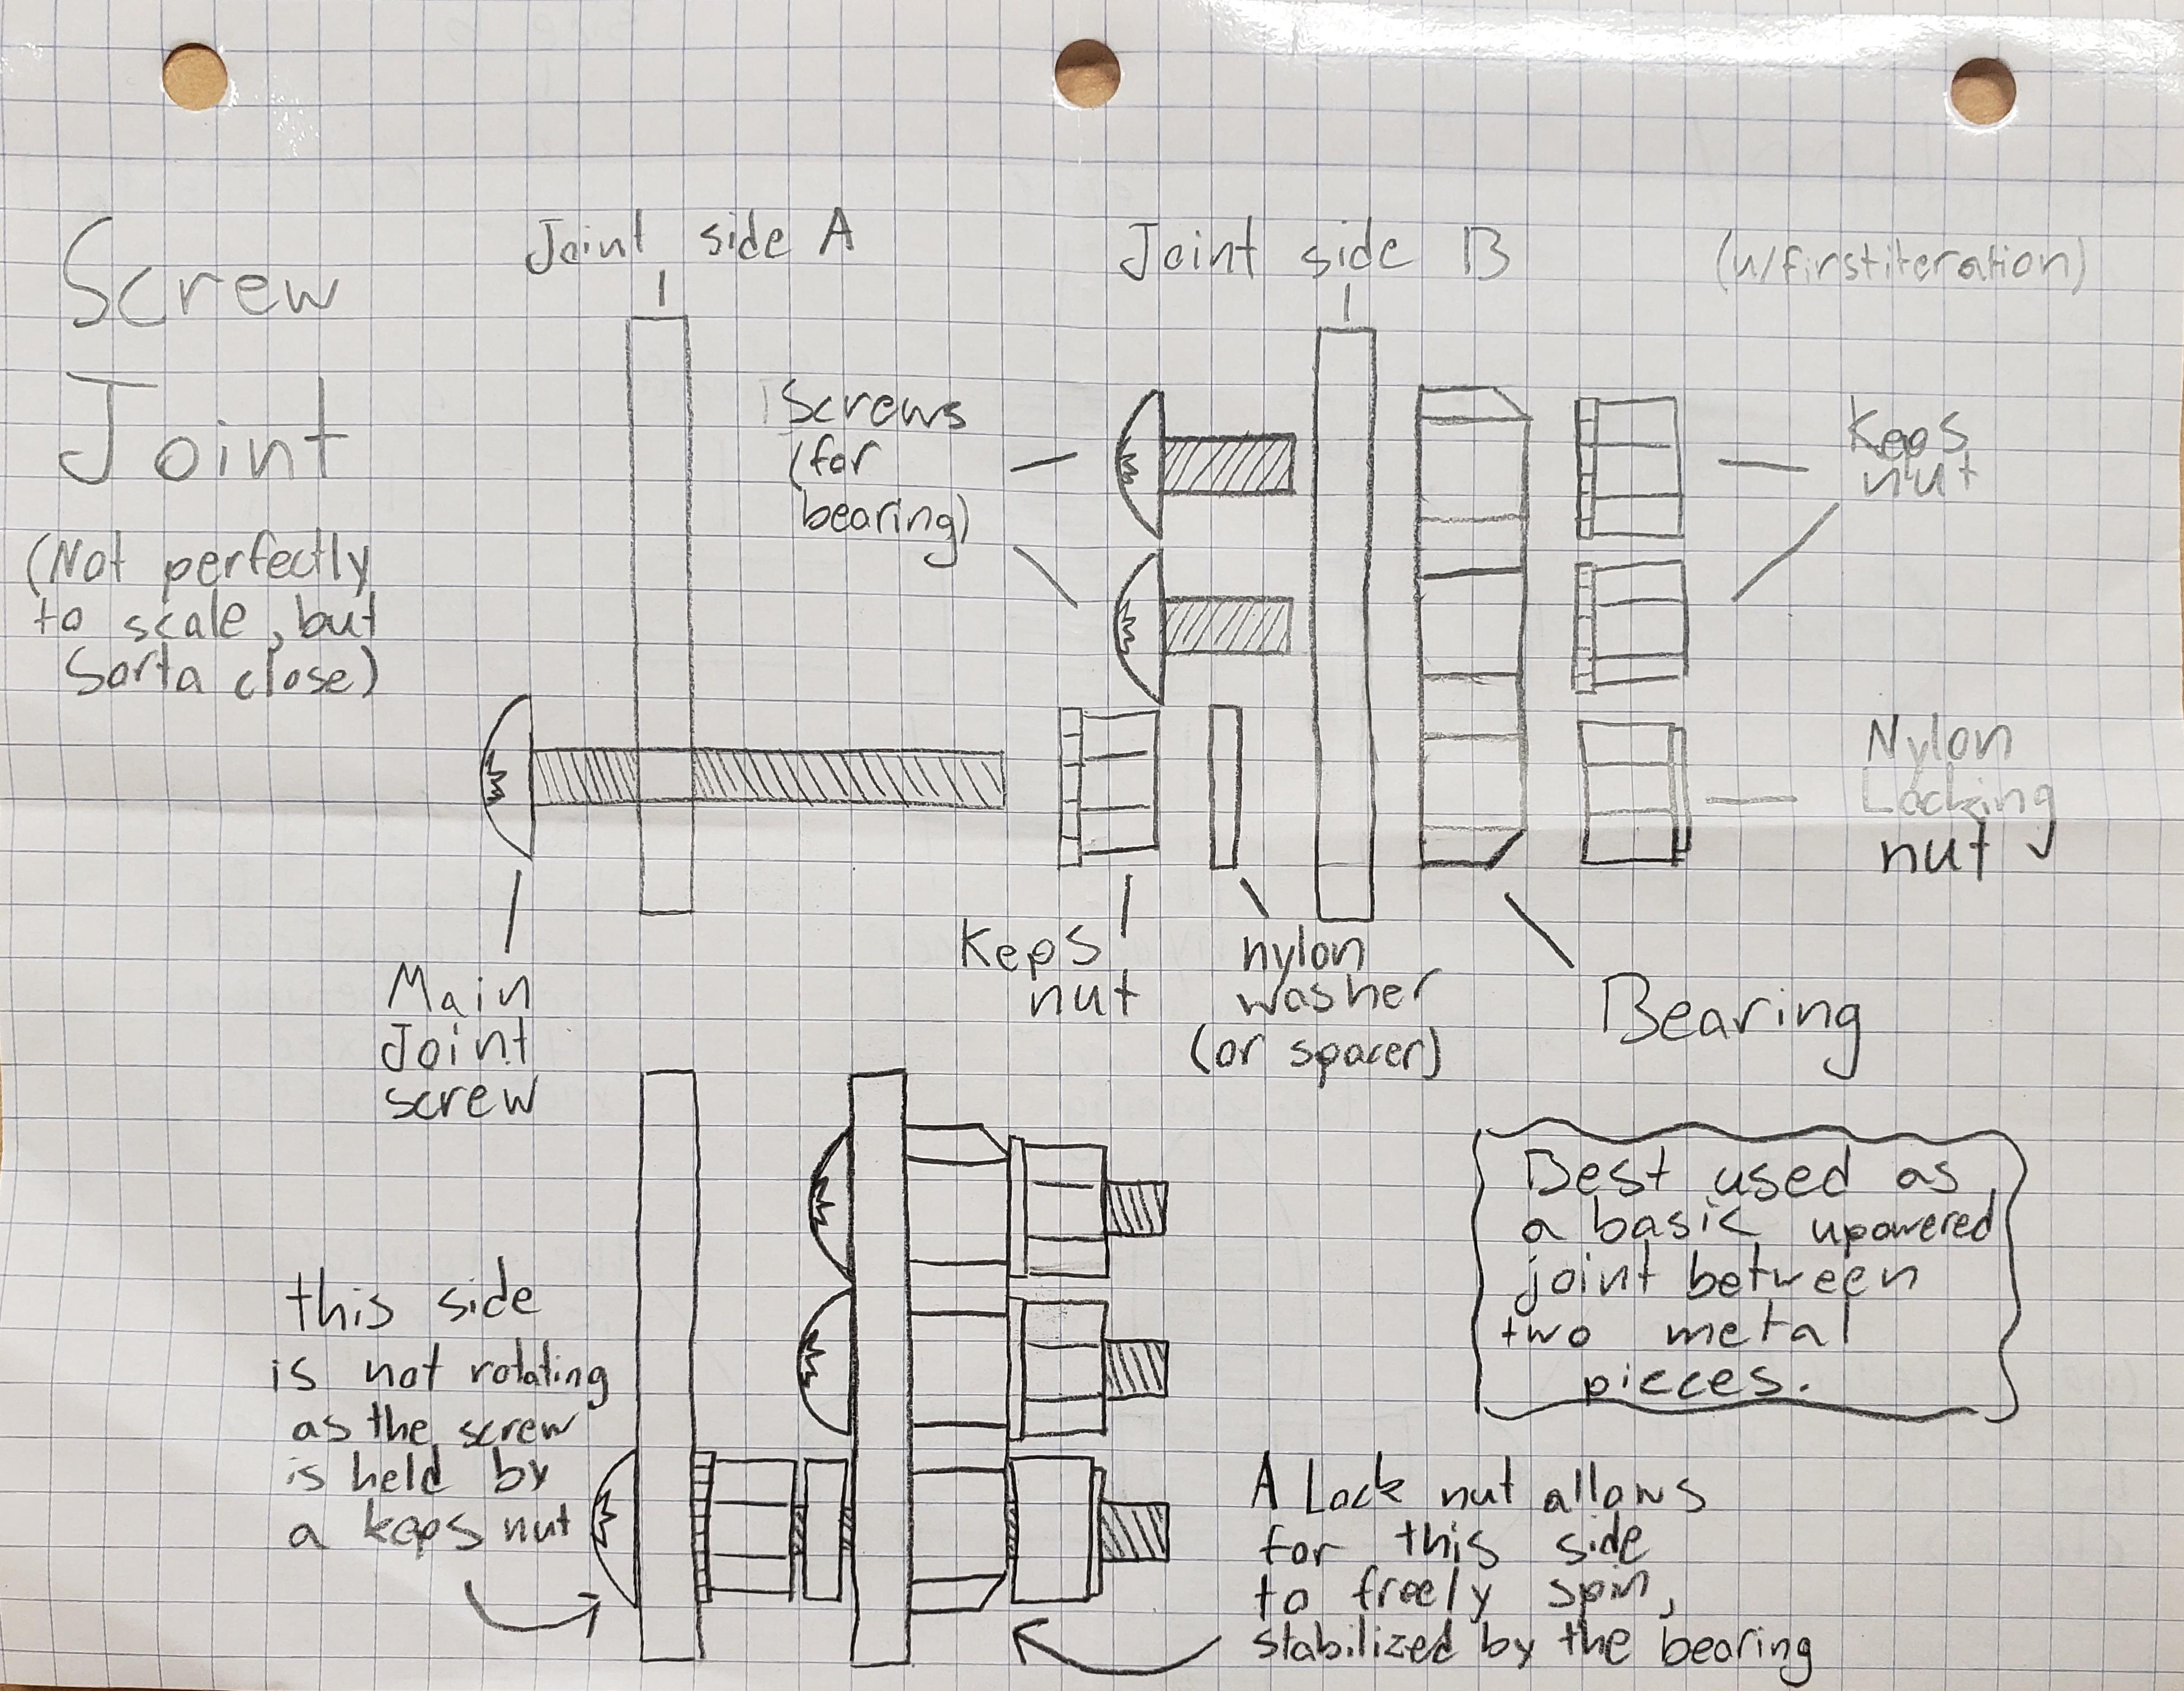 Screw
Joint
(Not perfectly
to scale, but
Sorta close)
Joint side A
Joint side B
(w/first iteration)
Screws
(for
bearing)
Keps
nut
Nylon
Locking
nut
Main
Joint
screw
Keps
nut
nylon
washer
(or spacer)
Bearing
this side
is not rotating
as the screw
is held by
a keps nut
Best used as
a basic upowered
joint between
two metal
pieces.
A Lock nut allows
for this side
to freely spin,
stabilized by the bearing